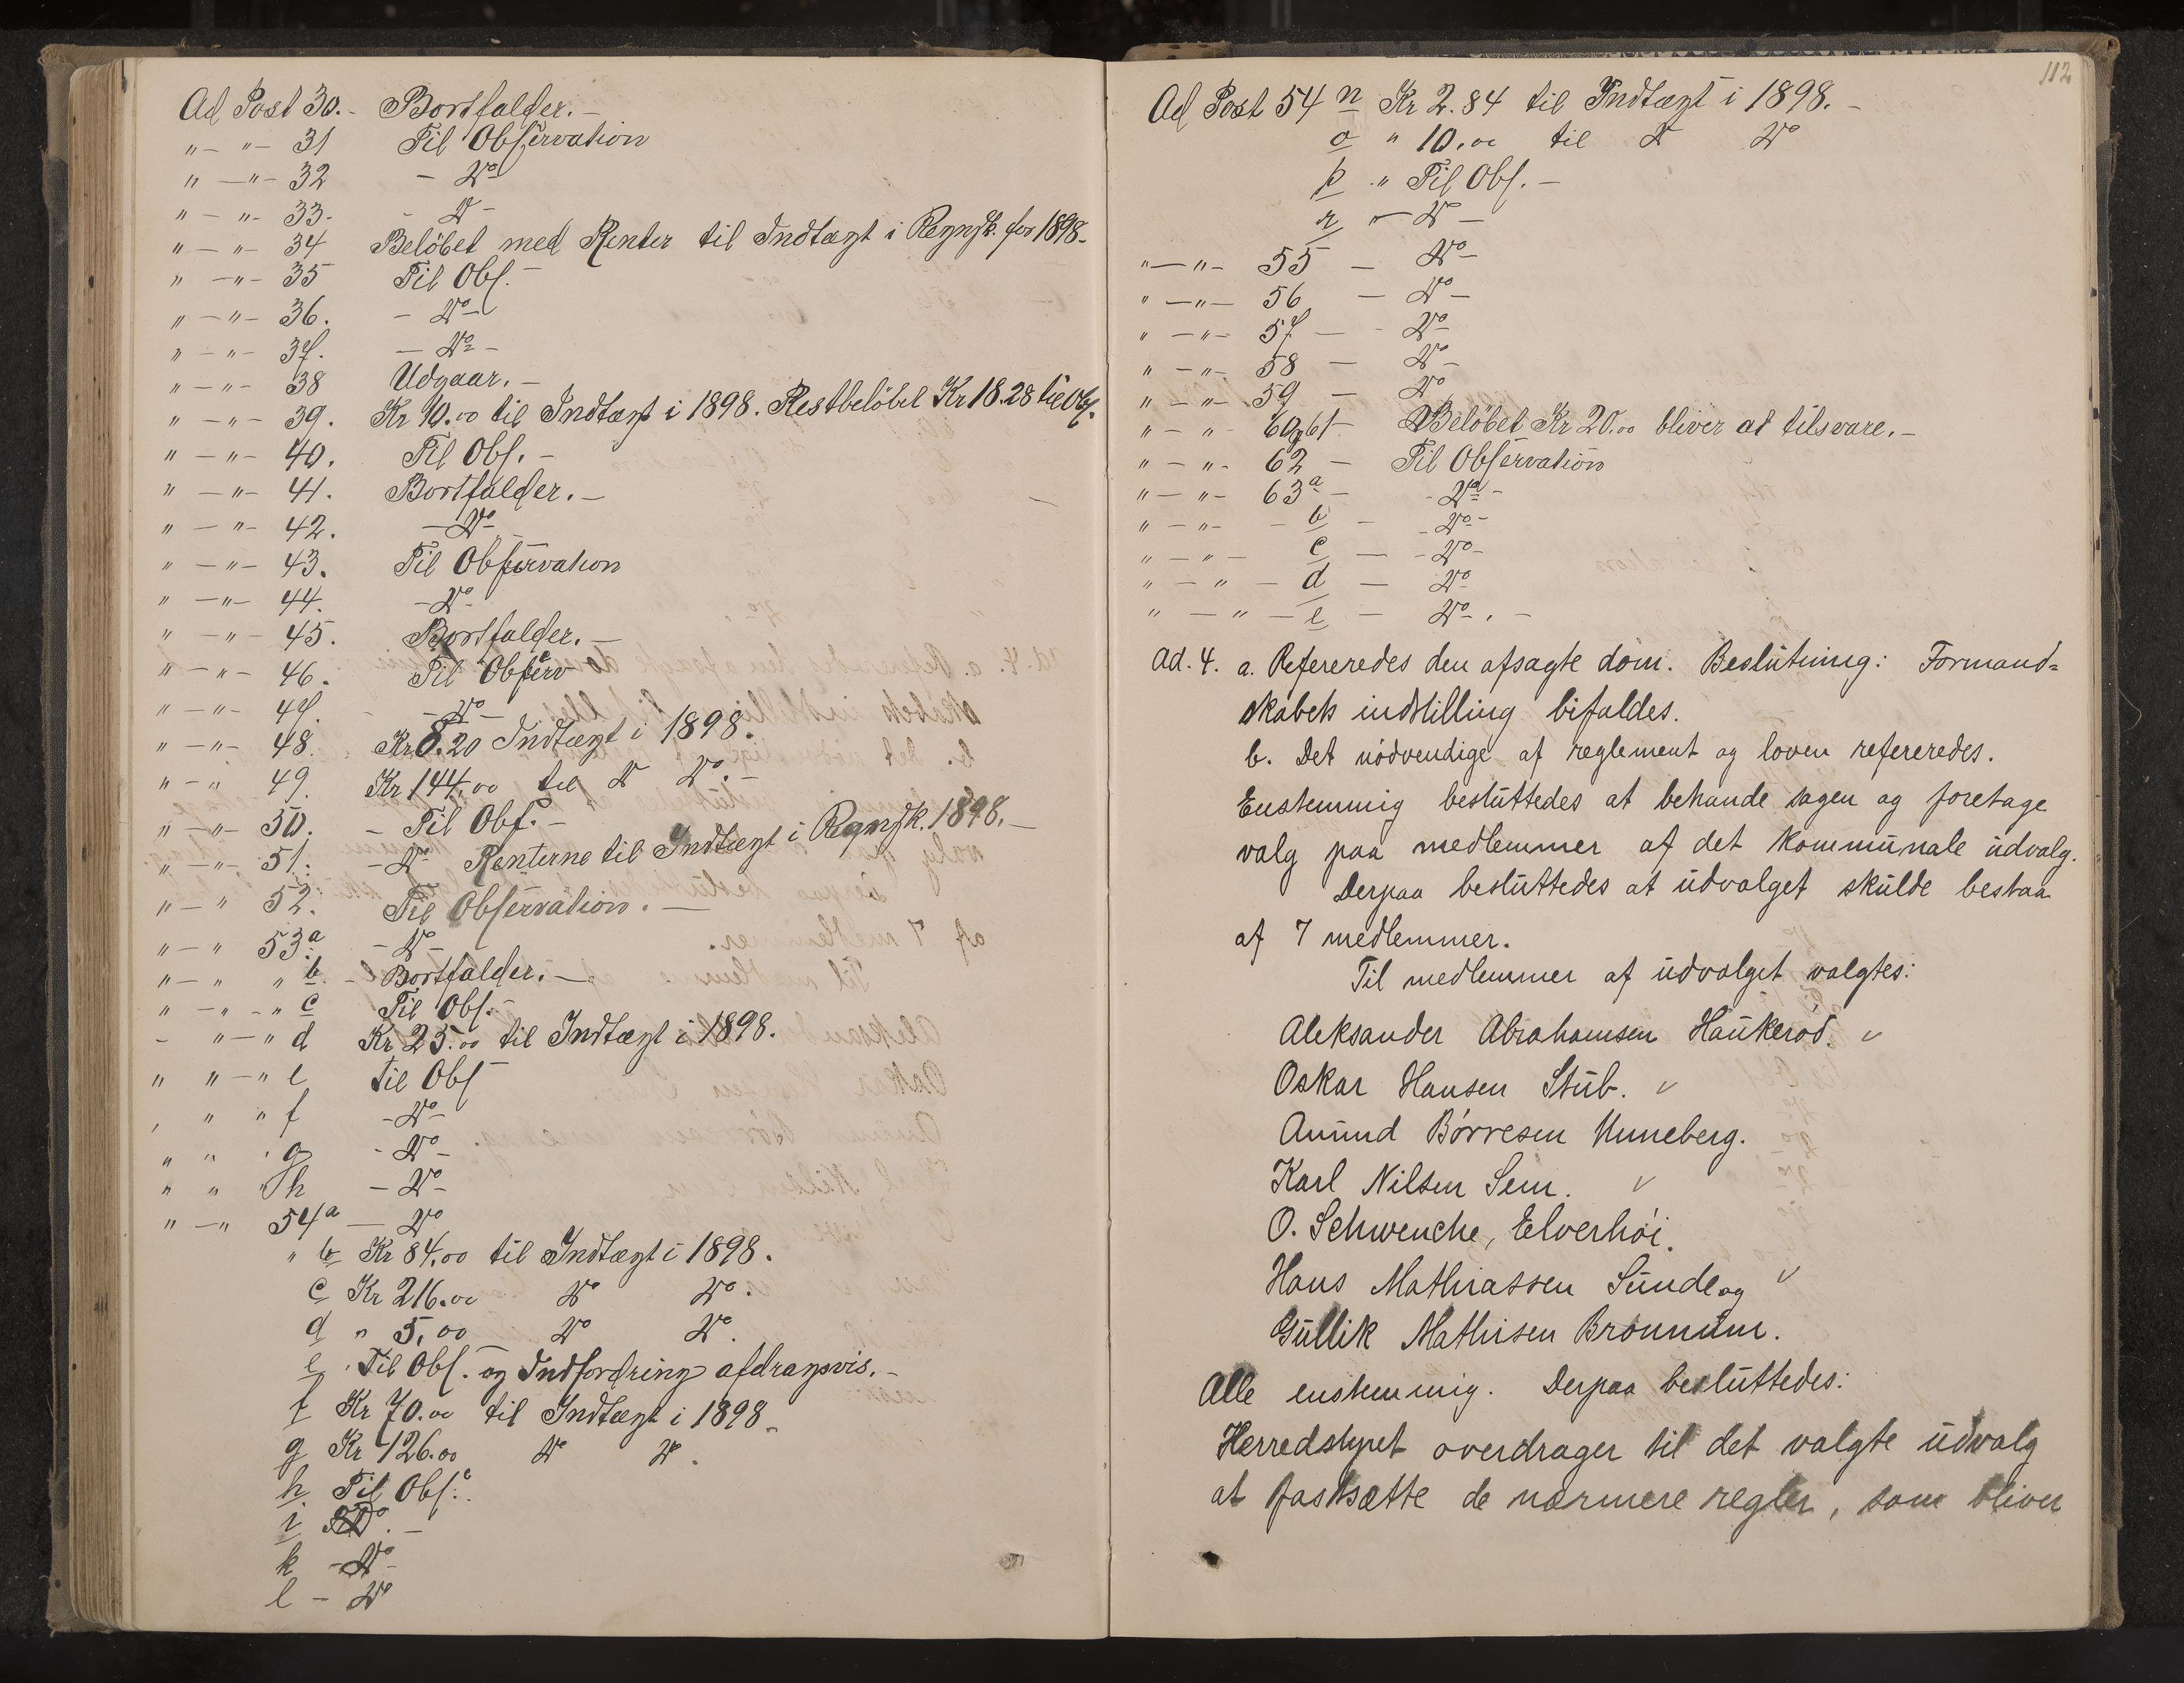 Ad Post 30.- Bortfalder.-
"- "- 31 Til Observation
" -"- 32 - Do
" - "- 33- - Do -
" - "- 34 Beløbet med Renter til Indtægt i Regnsk. for 1898.
" -"- 35 Til Obs.-
" -"- 36. - Do -
" - "- 37. - Do -
" -"- 38 Udgaar.-
" -"- 39. Kr 10.00 til Indtægt i 1898. Restbeløbet Kr 18.28 til Obs.
" -"- 40. Til Obs.-
" -"- 41. Bortfalder.-
" -"- 42. - Do
" -"- 43. Til Observation
" -"- 44. - Do -
" -"- 45. Bortfalder.-
" -"- 46. Til Observ
" -"- 47. - Do -
" -"- 48. Kr 8.20 Indtægt i 1898.
" - " 49. Kr 144.00 til Do Do.-
" -"- 50. - Til Obs.-
" -"- 51. - Do Renterne til Indtægt i Regnsk. 1898.-
" - " 52. Til Observation.-
" - " 53.a - Do -
" - " " b. - Bortfalder.-
" - " - " c Til Obs.-
- " - " d Kr 25.00 til Indtægt i 1898.
" " - " e til Obs
, " " f - Do -
" " " g - Do -
" " " h - Do -
" - " 54a - Do
" b Kr 84.00 til Indtægt i 1898.
c Kr 216.00 Do Do.
d " 5,00 Do Do.
e . Til Obs. og Indfordring afdragsvis.-
f Kr 70.00 til Indtægt i 1898.
g Kr 126.00 Do Do.
h Til Obs.
i Do.-
k - Do -
l - Do
112
Ad Post 54 n Kr 2.84 til Indtægt i 1898.-
o " 10.00 til Do Do
p " Til Obs.-
r " - Do -
"-"- 55 - Do -
" -"- 56 - Do -
" -"- 57 - - Do
" -"- 58 - Do -
" -"- 59 - Do
" - " - 60 og 61 - Beløbet Kr 20.00 bliver at tilsvare.-
" -"- 62 - Til Observation
" -"- 63a - - Do -
" -"- - b - - Do -
" -"- c - - Do -
" - " - d - Do
" - " - e - Do.-
Ad. 4. a. Refereredes den afsagte dom. Beslutning: Formand=
skabets indstilling bifaldes.
b. Det nödvendige af reglement og loven refereredes.
Enstemmig besluttedes at behande sagen og foretage
valg paa medlemmer af det kommunale udvalg.
Derpaa besluttedes at udvalget skulde bestaa
af 7 medlemmer.
Til medlemmer af udvalget valgtes:
Aleksander Abrahamsen Haukeröd. v
Oskar Hansen Stub. v
Amund Börresen Unneberg.
Karl Nilsen Sem. v
O. Schwencke, Elverhöi.
Hans Mathiassen Sunde og v
Gullik Mathisen Bronnum.
Alle enstemmig. Derpaa besluttedes:
Herredstyret overdrager til det valgte udvalg
at fastsætte de nærmere regler, som bliver